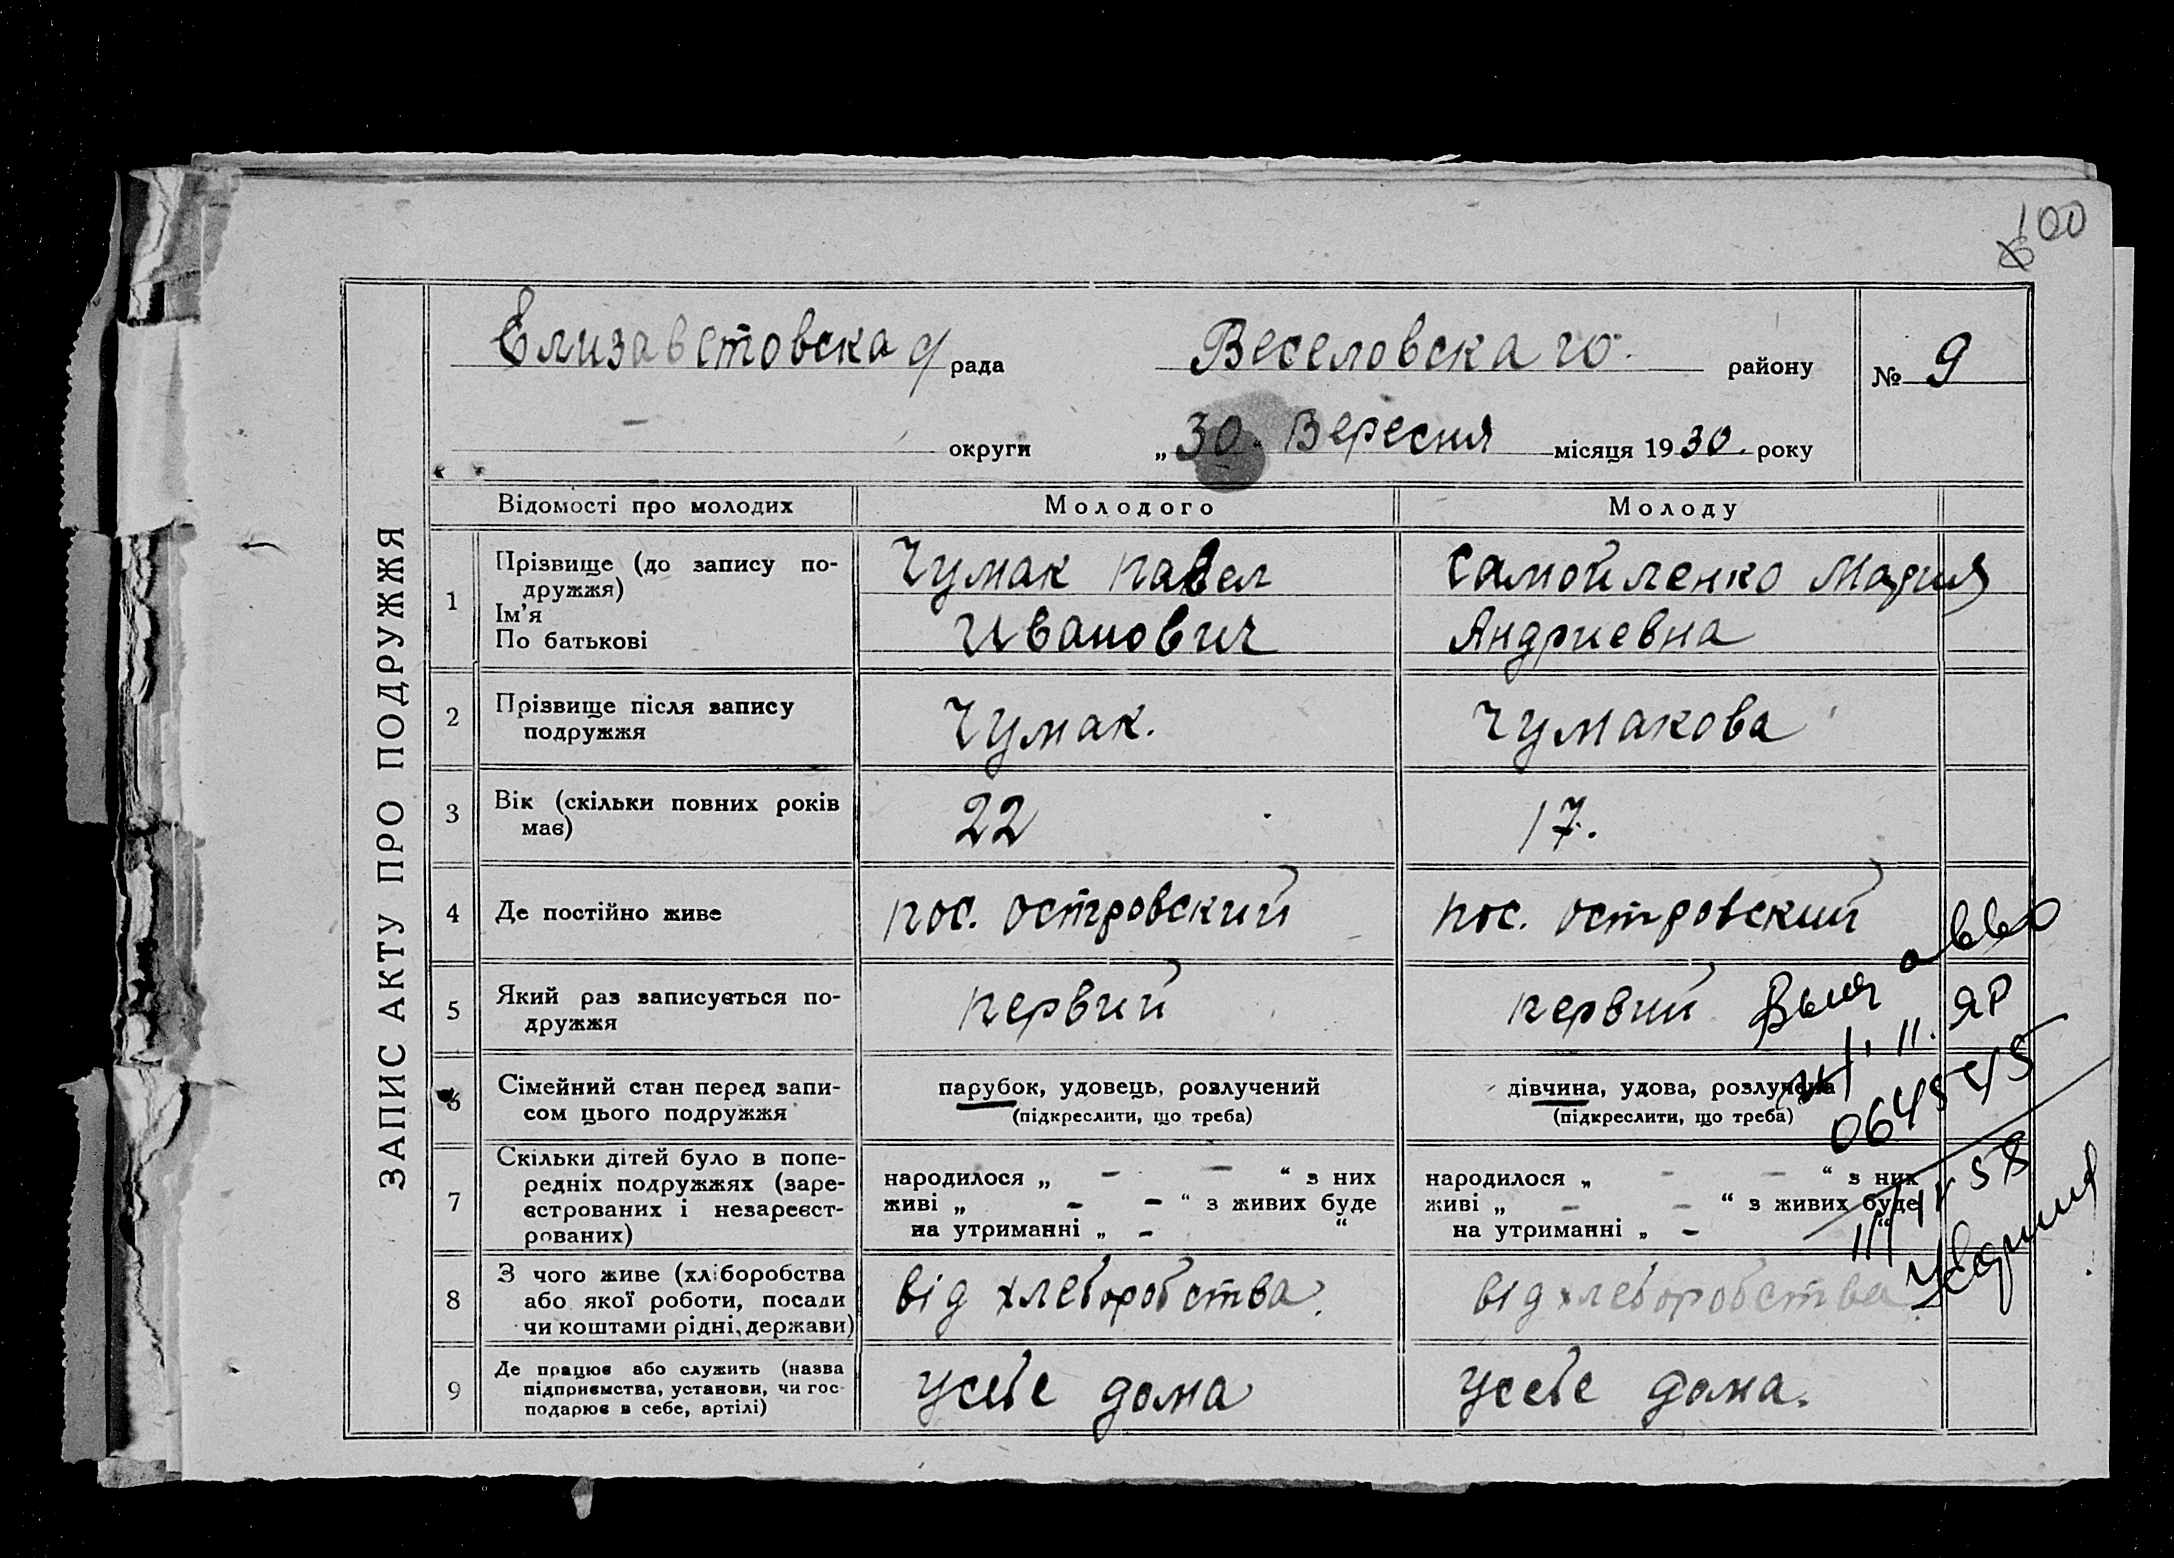 100
ЗАПИС АКТУ ПРО ПОДРУЖЖЯ
Елизавстовска рада Веселовска го. району № 9
— округи „ 30. Вересня місяця 1930. року
Відомості про молодих Молодого Молоду
1 Прізвище (до запису по-
дружжя)
Ім'я
По батькові
Чумак Павел
Иванович
Самойленко Мария
Андриевна
2 Прізвище після запису
подружжя
Чумак.
Чумакова
3 Вік (скільки повних років
має)
22
17.
4 Де постійно живе
пос. островский
пос. островский
5 Який раз записується по-
дружжя
первий
первий
6 Сімейний стан перед запи-
сом цього подружжя
парубок, удовець, розлучений
(підкреслити, що треба)
дівчина, удова, розлучена
(підкреслити, що треба)
7 Скільки дітей було в попе-
редніх подружжях (заре-
єстрованих і незареєст-
рованих)
народилося „ — — “ з них
живі „ — — “ з живих буде
на утриманні „ — “
народилося „ — — “ з них
живі „ — — “ з живих буде
на утриманні „ — “
8 З чого живе (хліборобства
або якої роботи, посади
чи коштами рідні, держави)
від хлеборобства.
від хлеборобства.
9 Де працює або служить (назва
підприємства, установи, чи гос-
подарює в себе, артілі)
усебе дома
усебе дома.
ЯР